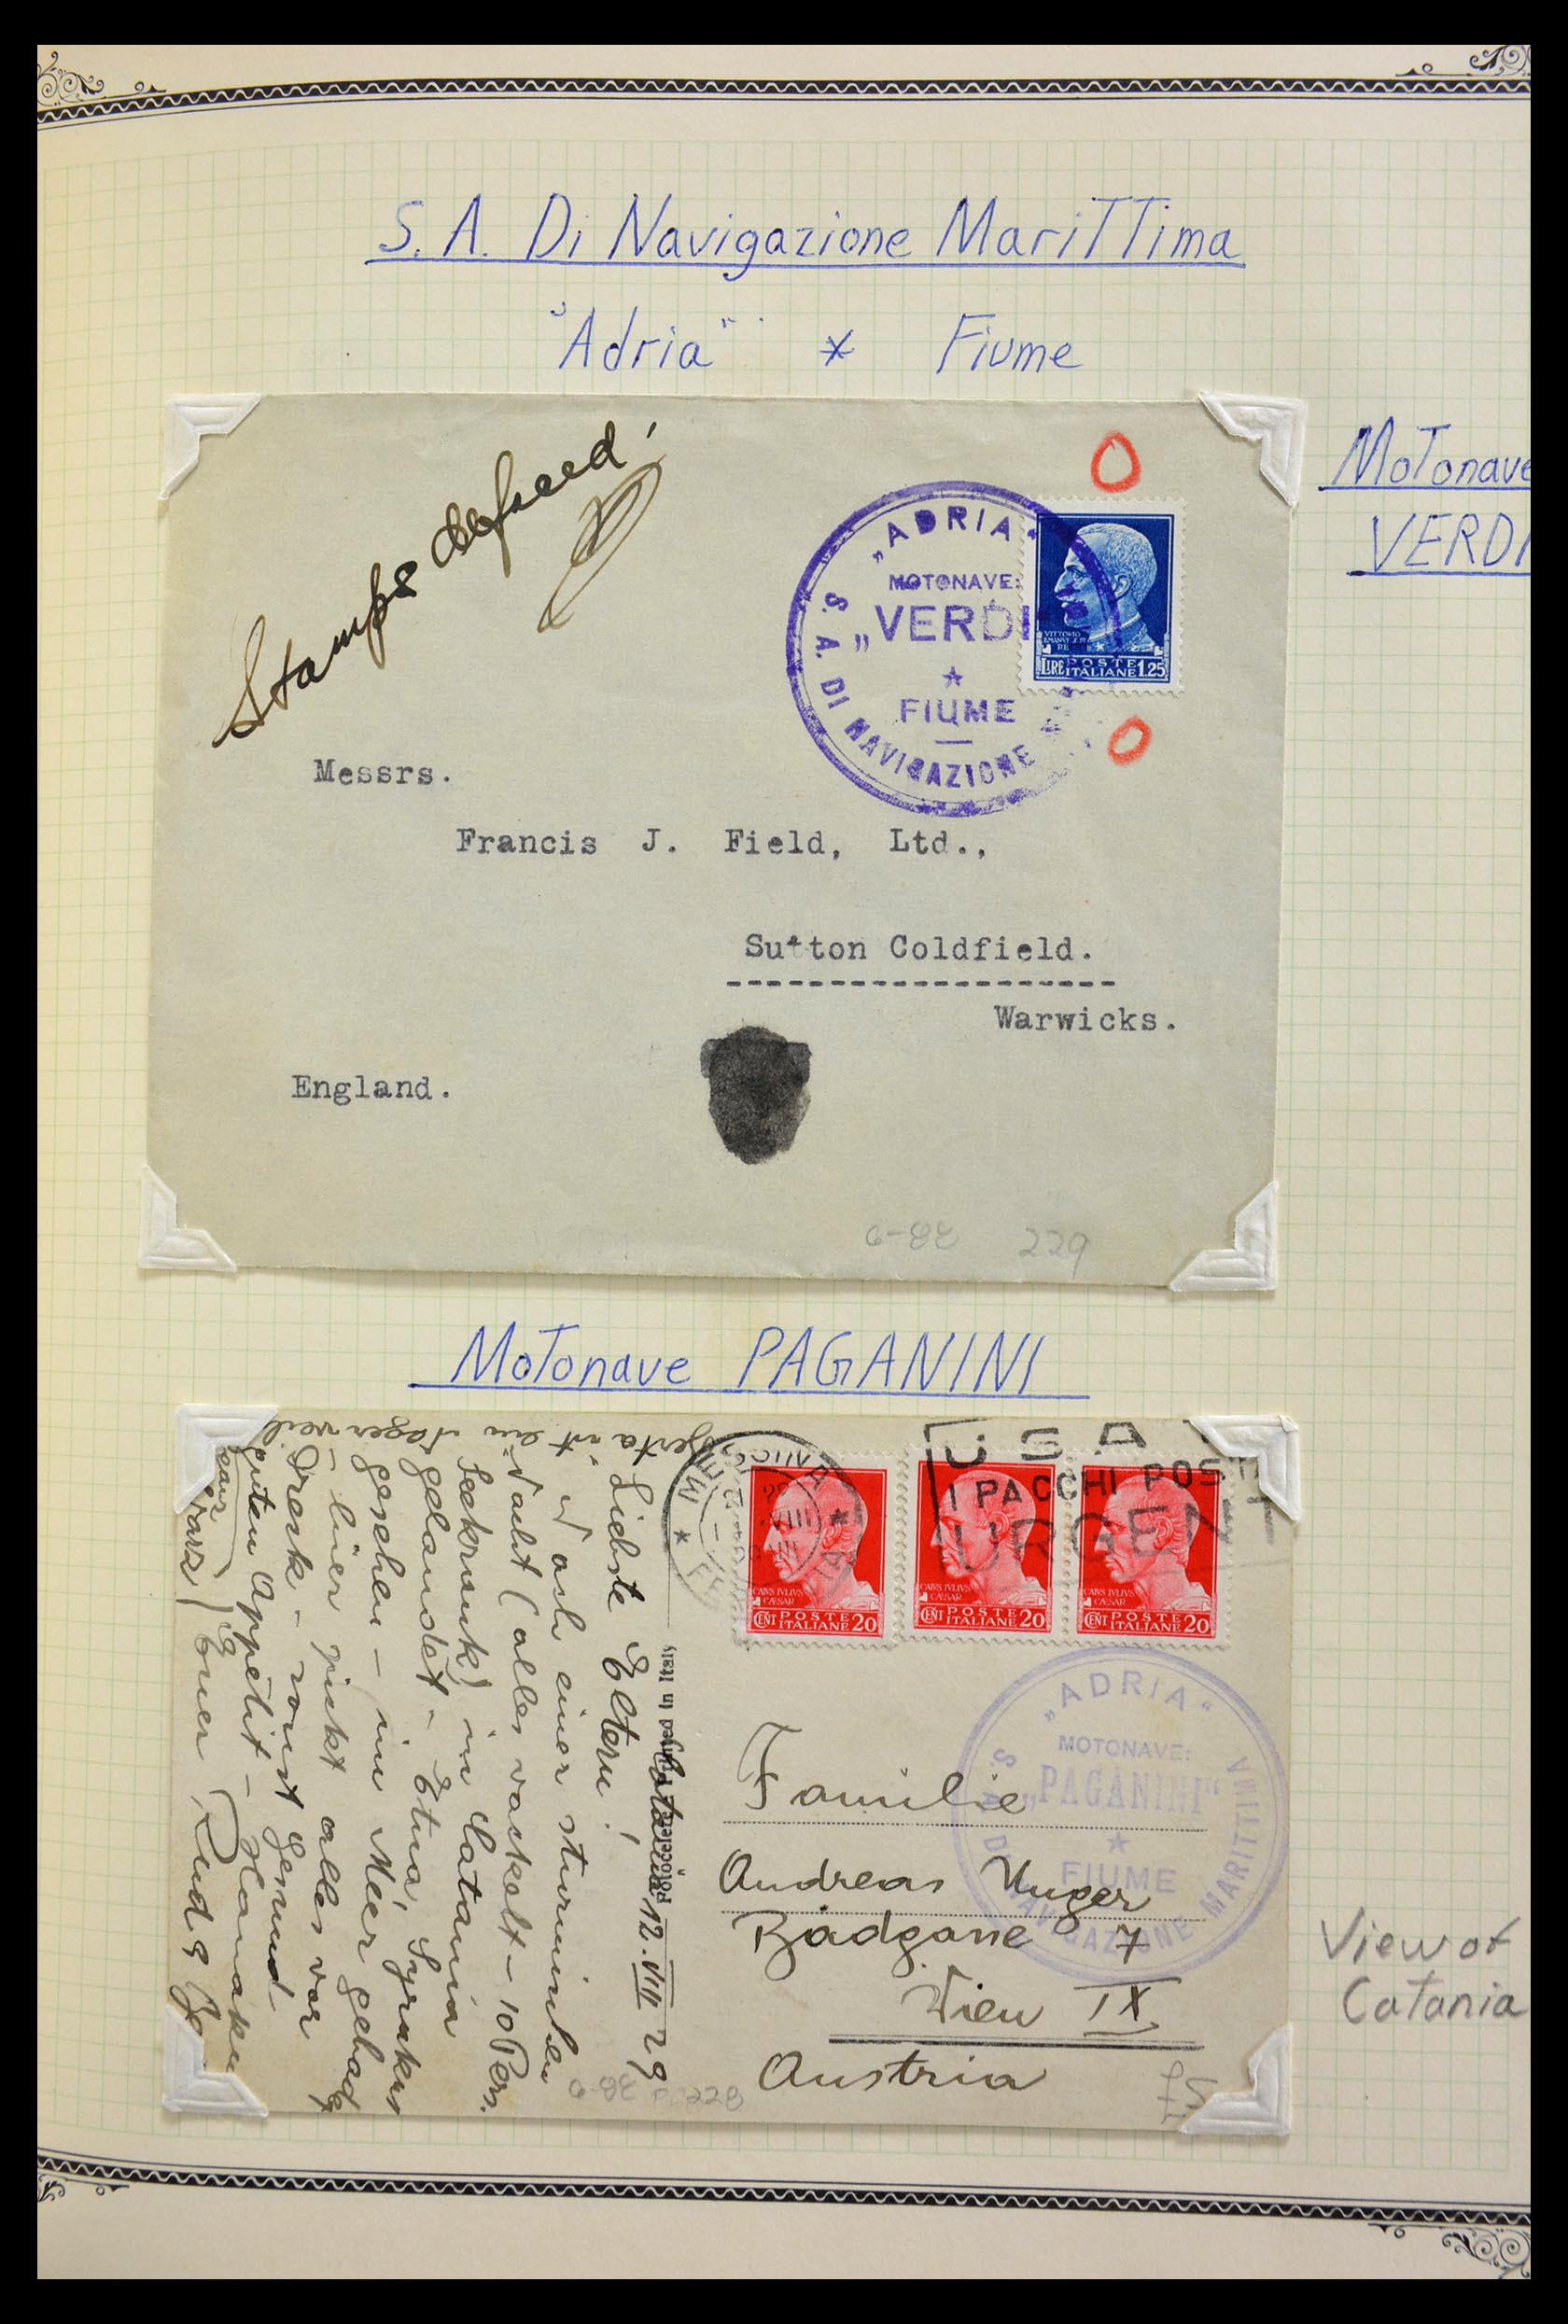 S. A. Di Navigazione MariTTima
"Adria" * Fiume
MoTonave
VERDI
Stamps defaced!
„ADRIA“
MOTONAVE:
„VERDI
FIUME
S. A. DI NAVIGAZIONE
VITTORIO
RE
LIRE POSTE ITALIANE 1.25
Messrs.
Francis J. Field, Ltd.,
Sutton Coldfield.
Warwicks.
England.
229
MoTonave PAGANINI
U S A
I PACCHI POS
URGEN
CAIVS IVLIVS CÆSAR
CENT POSTE ITALIANE 20
CAIVS IVLIVS CÆSAR
CENT POSTE ITALIANE 20
CAIVS IVLIVS CÆSAR
CENT POSTE ITALIANE 20
„ADRIA“
MOTONAVE:
„PAGANINI“
FIUME
S. A. DI NAVIGAZIONE MARITTIMA
in Italy
Catania 12. VIII 29
Liebste Eltern!
Nach einer stürmischen
Nacht (alles wackelt - 10 Pers.
Seekrank) in Catania
gelandet - Etna, Syrakus
gesehen - im Meer gebadet
- hier pickt alles vor
Dreck - sonst gesund
guten Appetit -
Euer
Familie
Andreas Unger
Badgasse 7
Wien IX
Austria
228
View of
Catania